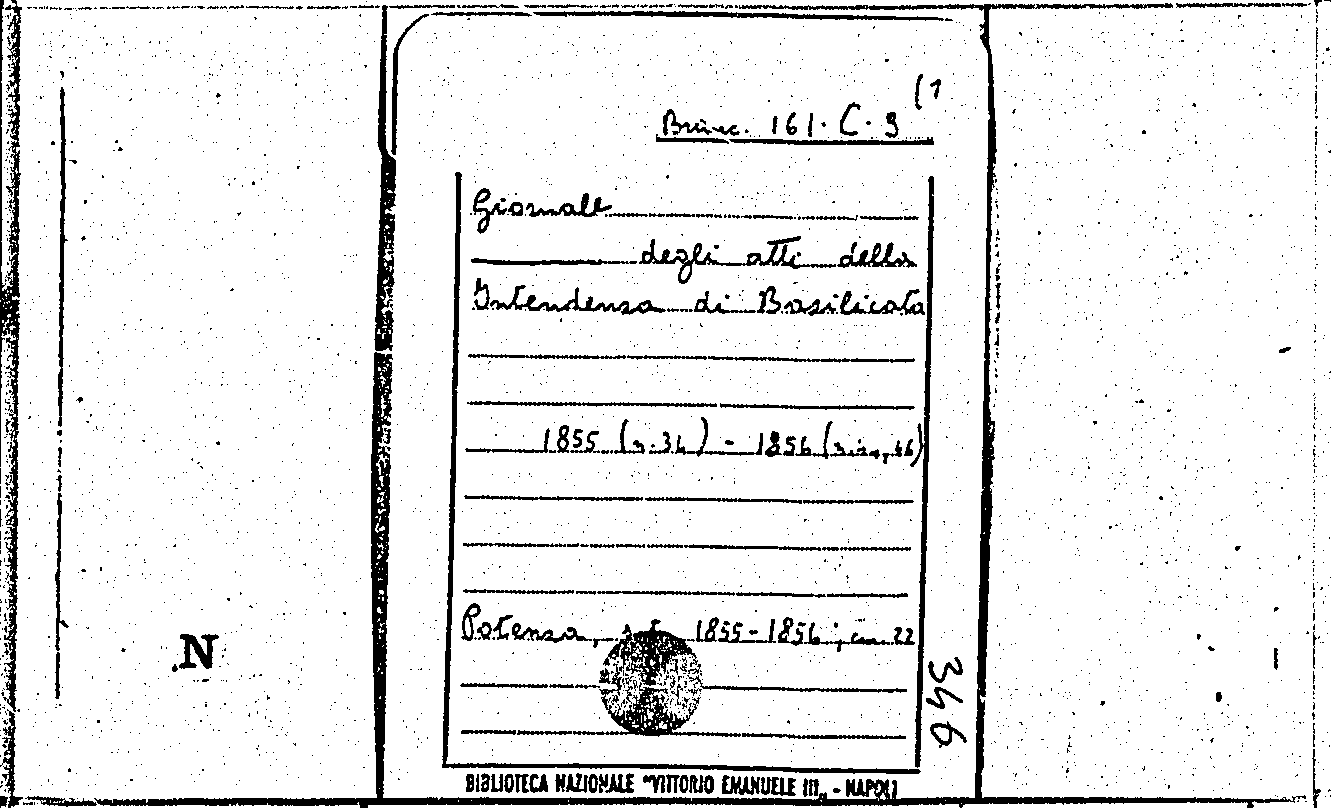 (1
Branc. 161. C. 9
Giornale
degli atti della
Intendenza di Basilicata
1855 (n. 34) - 1856 (
Potenza, s.t. 1855-1856; cm. 22
346
N
BIBLIOTECA NAZIONALE "VITTORIO EMANUELE III„ - NAPOLI